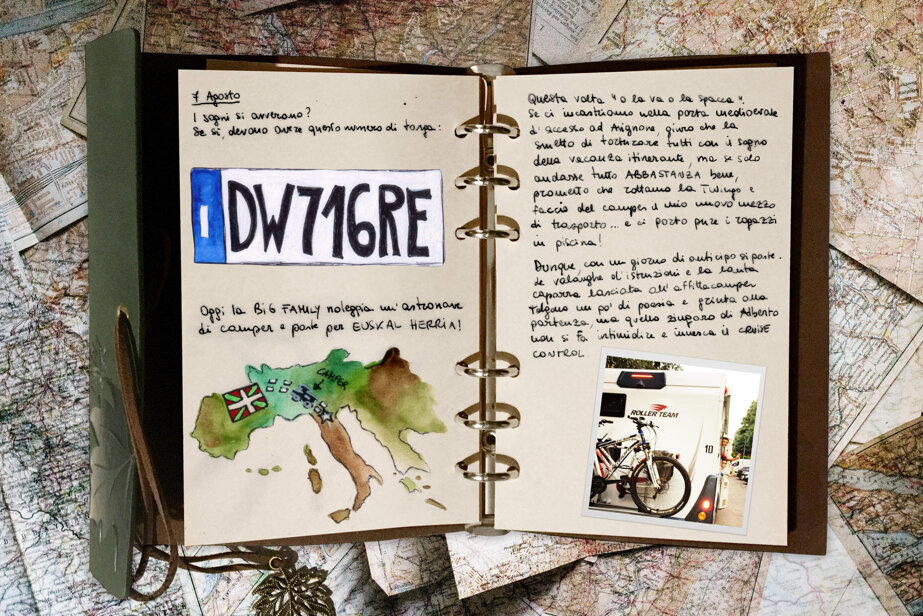 7 Agosto
I sogni si avverano?
Se sì, devono avere questo numero di targa:
I DW716RE
Oggi la BIG FAMILY noleggia un'astronave
di camper e parte per EUSKAL HERRIA!
CAMPER
Questa volta "o la va o la spacca".
Se ci incastriamo nella porta medioevale
d'accesso ad Avignone, giuro che la
smetto di torturare tutti con il sogno
della vacanza itinerante, ma se solo
andasse tutto ABBASTANZA bene,
prometto che rottamo la Twingo e
faccio del camper il mio nuovo mezzo
di trasporto... e ci porto pure i ragazzi
in piscina!
Dunque, con un giorno di anticipo si parte.
Le valanghe d'istruzioni e la lauta
caparra lasciata all'affittacamper
tolgono un po' di poesia e grinta alla
partenza, ma quello zingaro di Alberto
non si fa intimidire e innesca il CRUISE
CONTROL
ROLLER TEAM
10